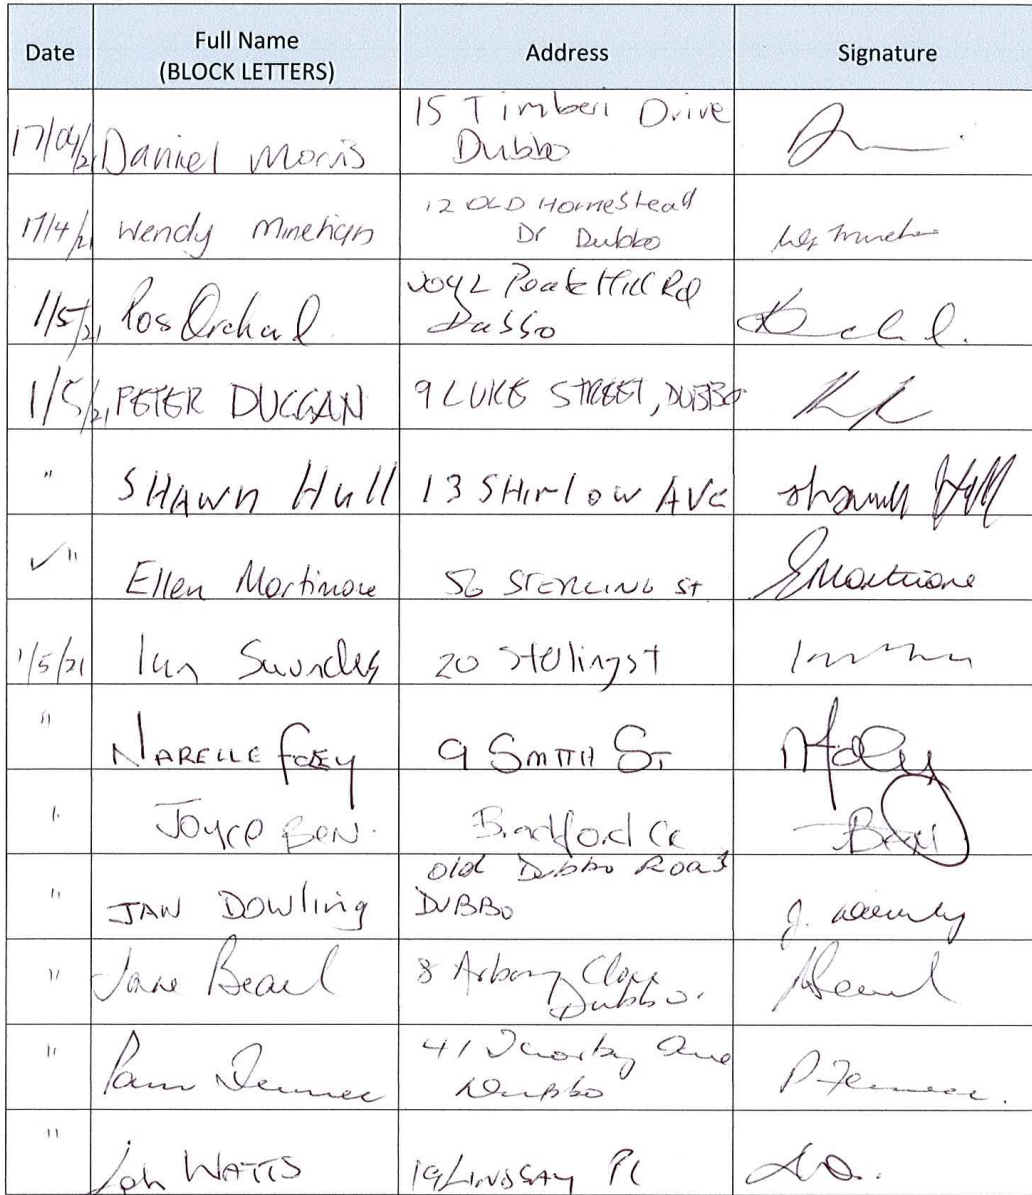 Date Full Name Address Signature
(BLOCK LETTERS)
17/04/21 Daniel Morris 15 Timberi Drive
Dubbo
17/4/21 Wendy Minehan 12 OLD Homestead
Dr Dubbo
1/5/21 Ros Orchard Peak Hill Rd
Dubbo
1/5/21 PETER DUGGAN 9 LUKE STREET, DUBBO
" SHAWN Hull 13 SHIrlow AVE Shawn Hull
✓ " Ellen Mortimore 56 STERLING St EMortimore
1/5/21 Ian Saunders 20 Sterling st
" NARELLE FOLEY 9 SMITH ST NFoley
" Joyce BEN. Bradford Cr
" JAN DOWling Old Dubbo Road
DUBBO
" Jane Beard 8 Close
Dubbo.
" Pam 41 Ave
Dubbo
" WATTS 19 LINDSAY PL